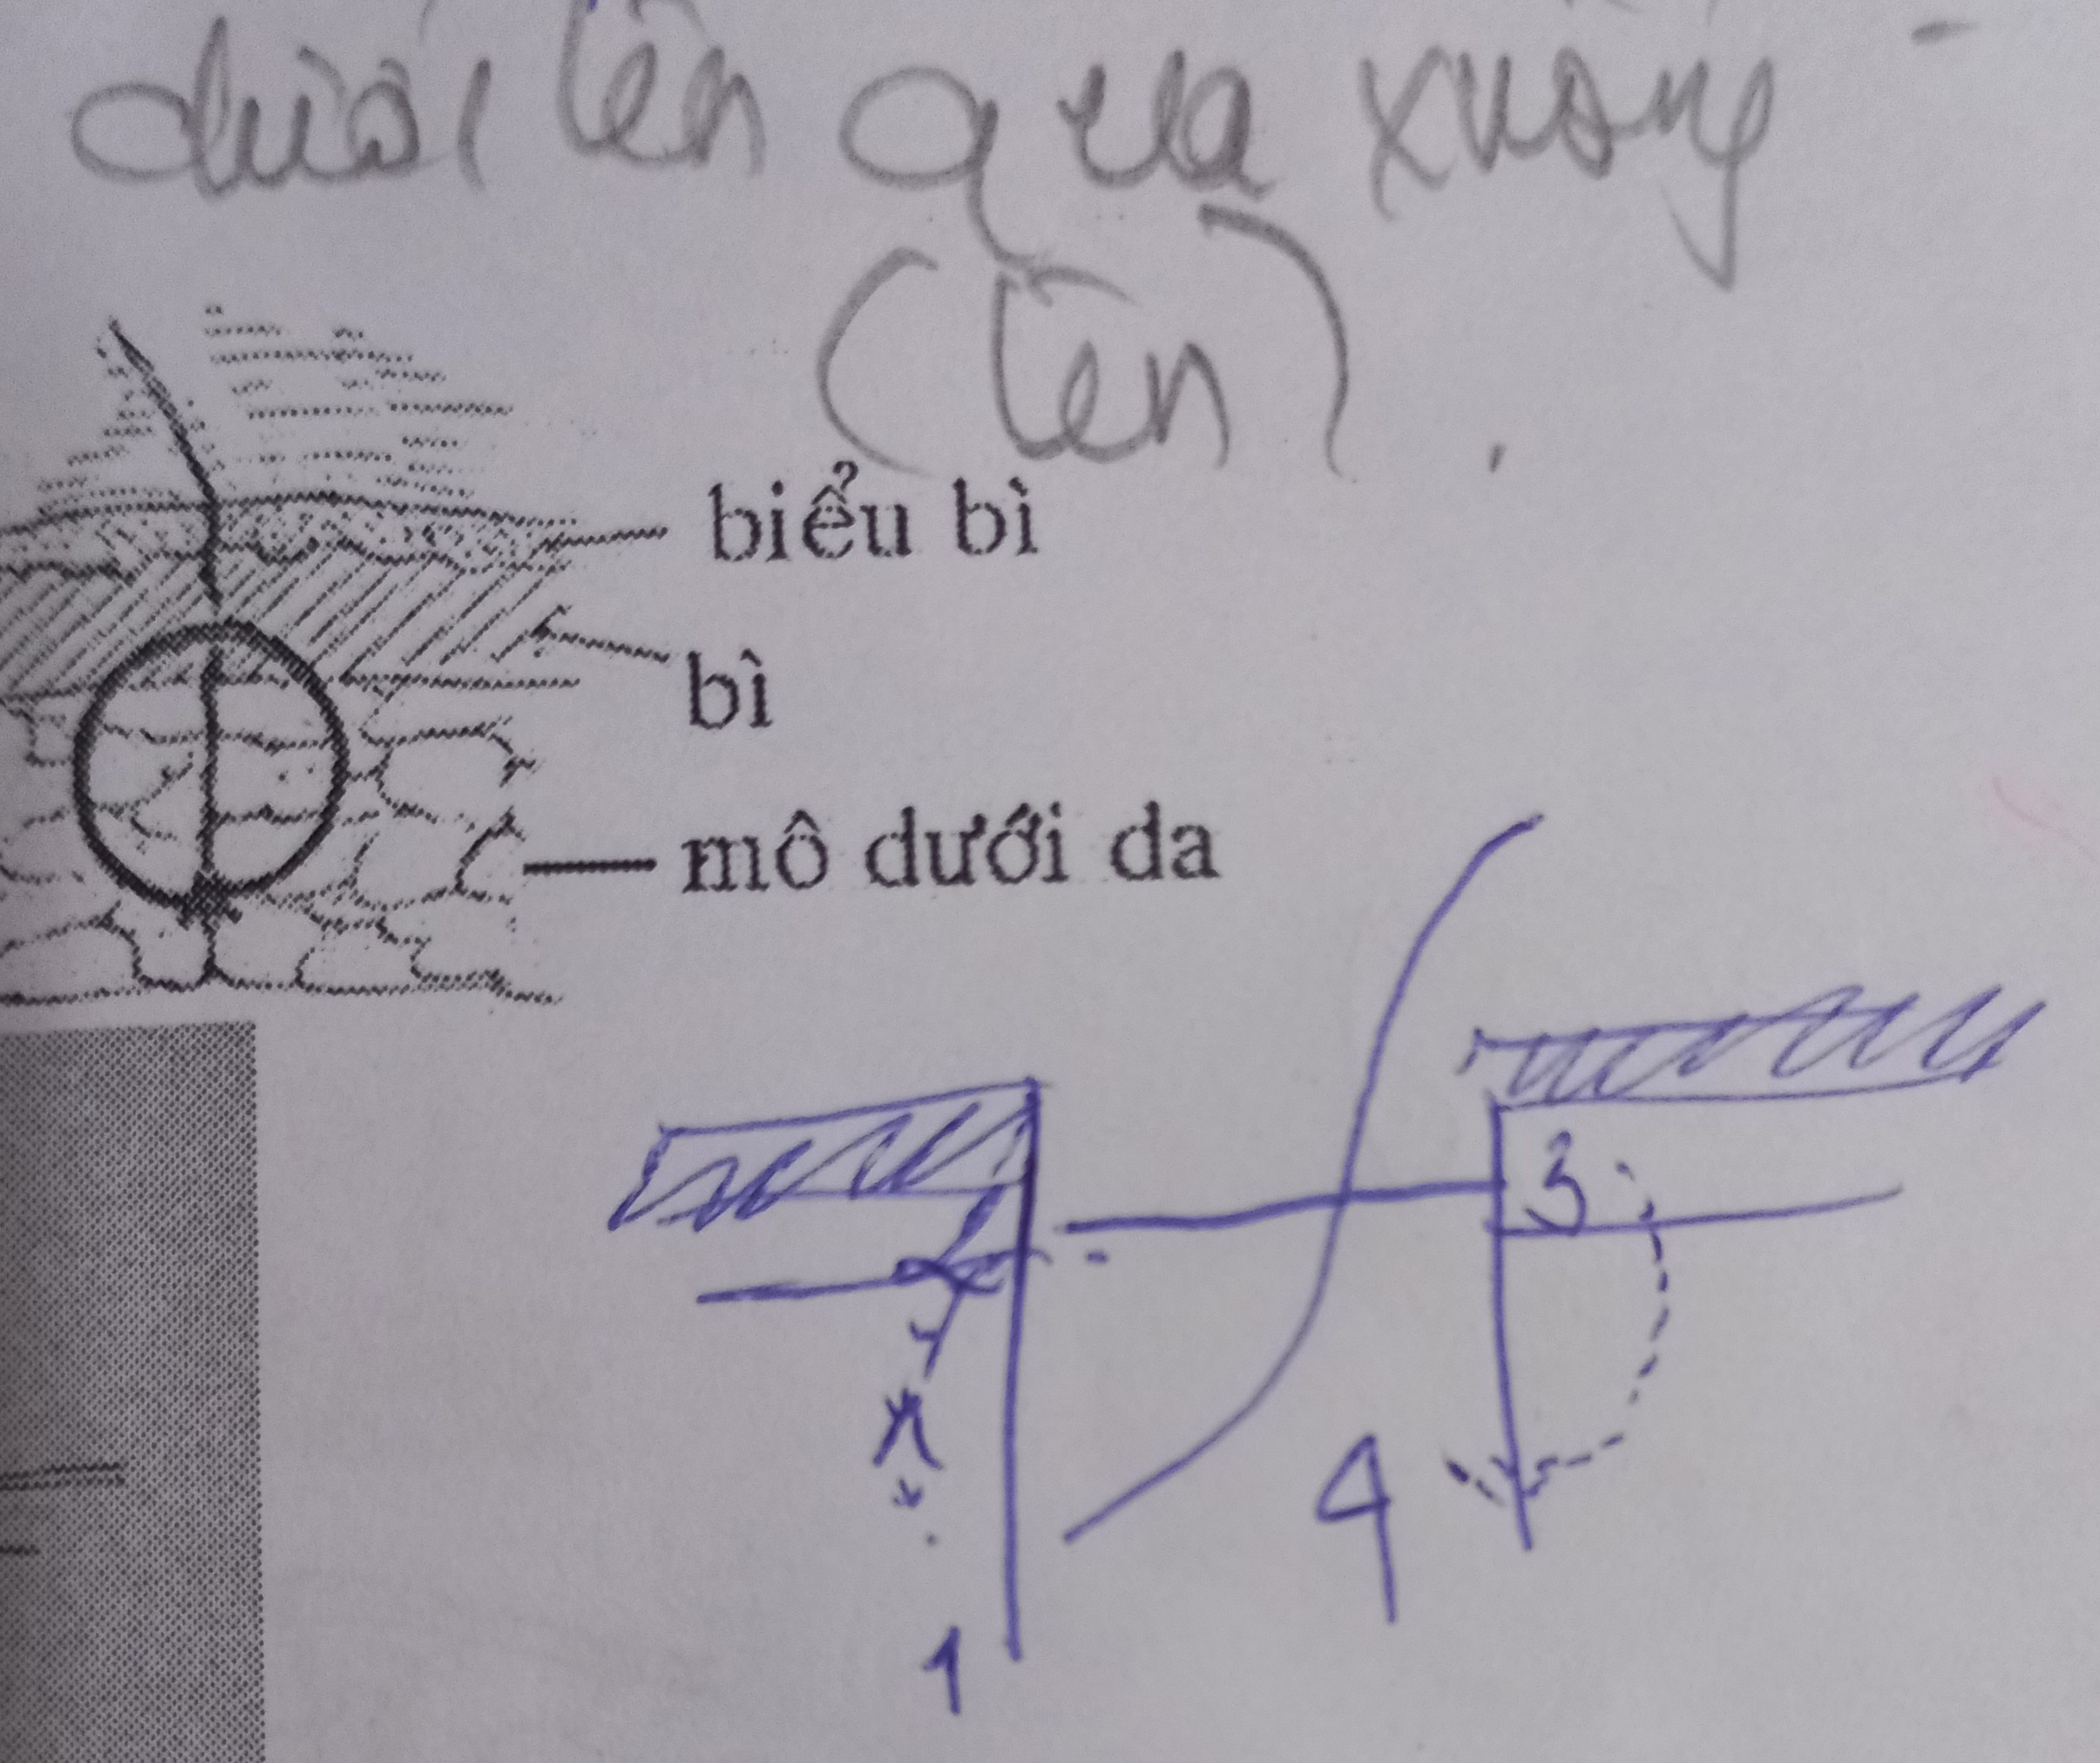 dưới lên qua xuống
(lên).
biểu bì
bì
mô dưới da
3
4
1